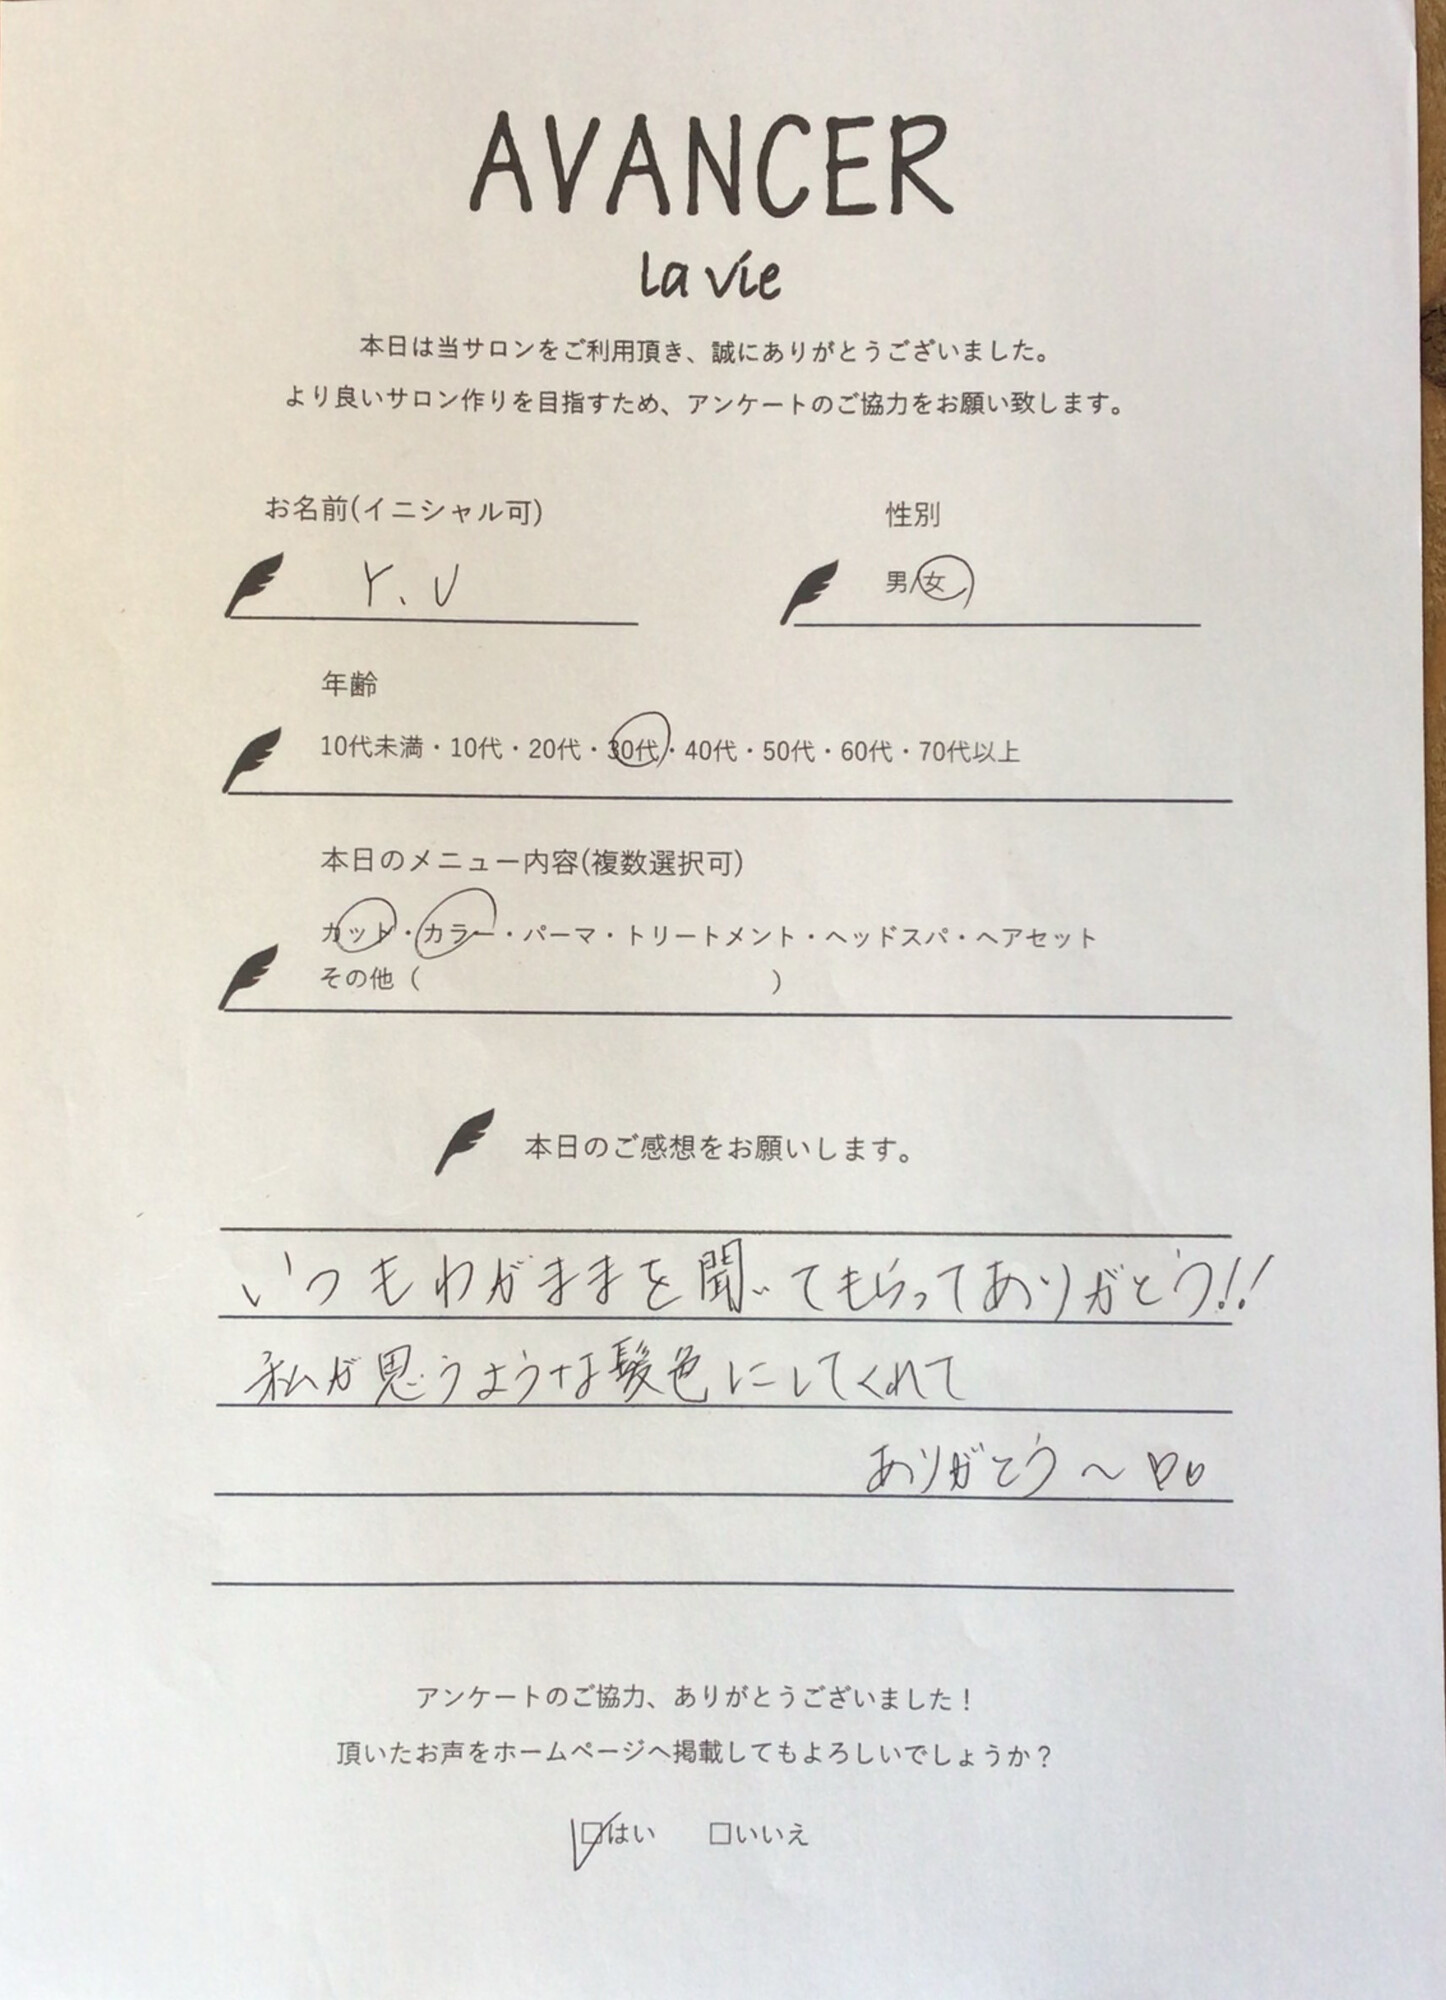 AVANCER
la vie
本日は当サロンをご利用頂き、誠にありがとうございました。
より良いサロン作りを目指すため、アンケートのご協力をお願い致します。
お名前(イニシャル可)
性別
Y.U
男/女
年齢
10代未満・10代・20代・30代・40代・50代・60代・70代以上
本日のメニュー内容(複数選択可)
カット・カラー・パーマ・トリートメント・ヘッドスパ・ヘアセット
その他（ ）
本日のご感想をお願いします。
いつもわがままを聞いてもらってありがとう!!
私が思うような髪色にしてくれて
ありがとう〜♡♡
アンケートのご協力、ありがとうございました！
頂いたお声をホームページへ掲載してもよろしいでしょうか？
☑はい □いいえ